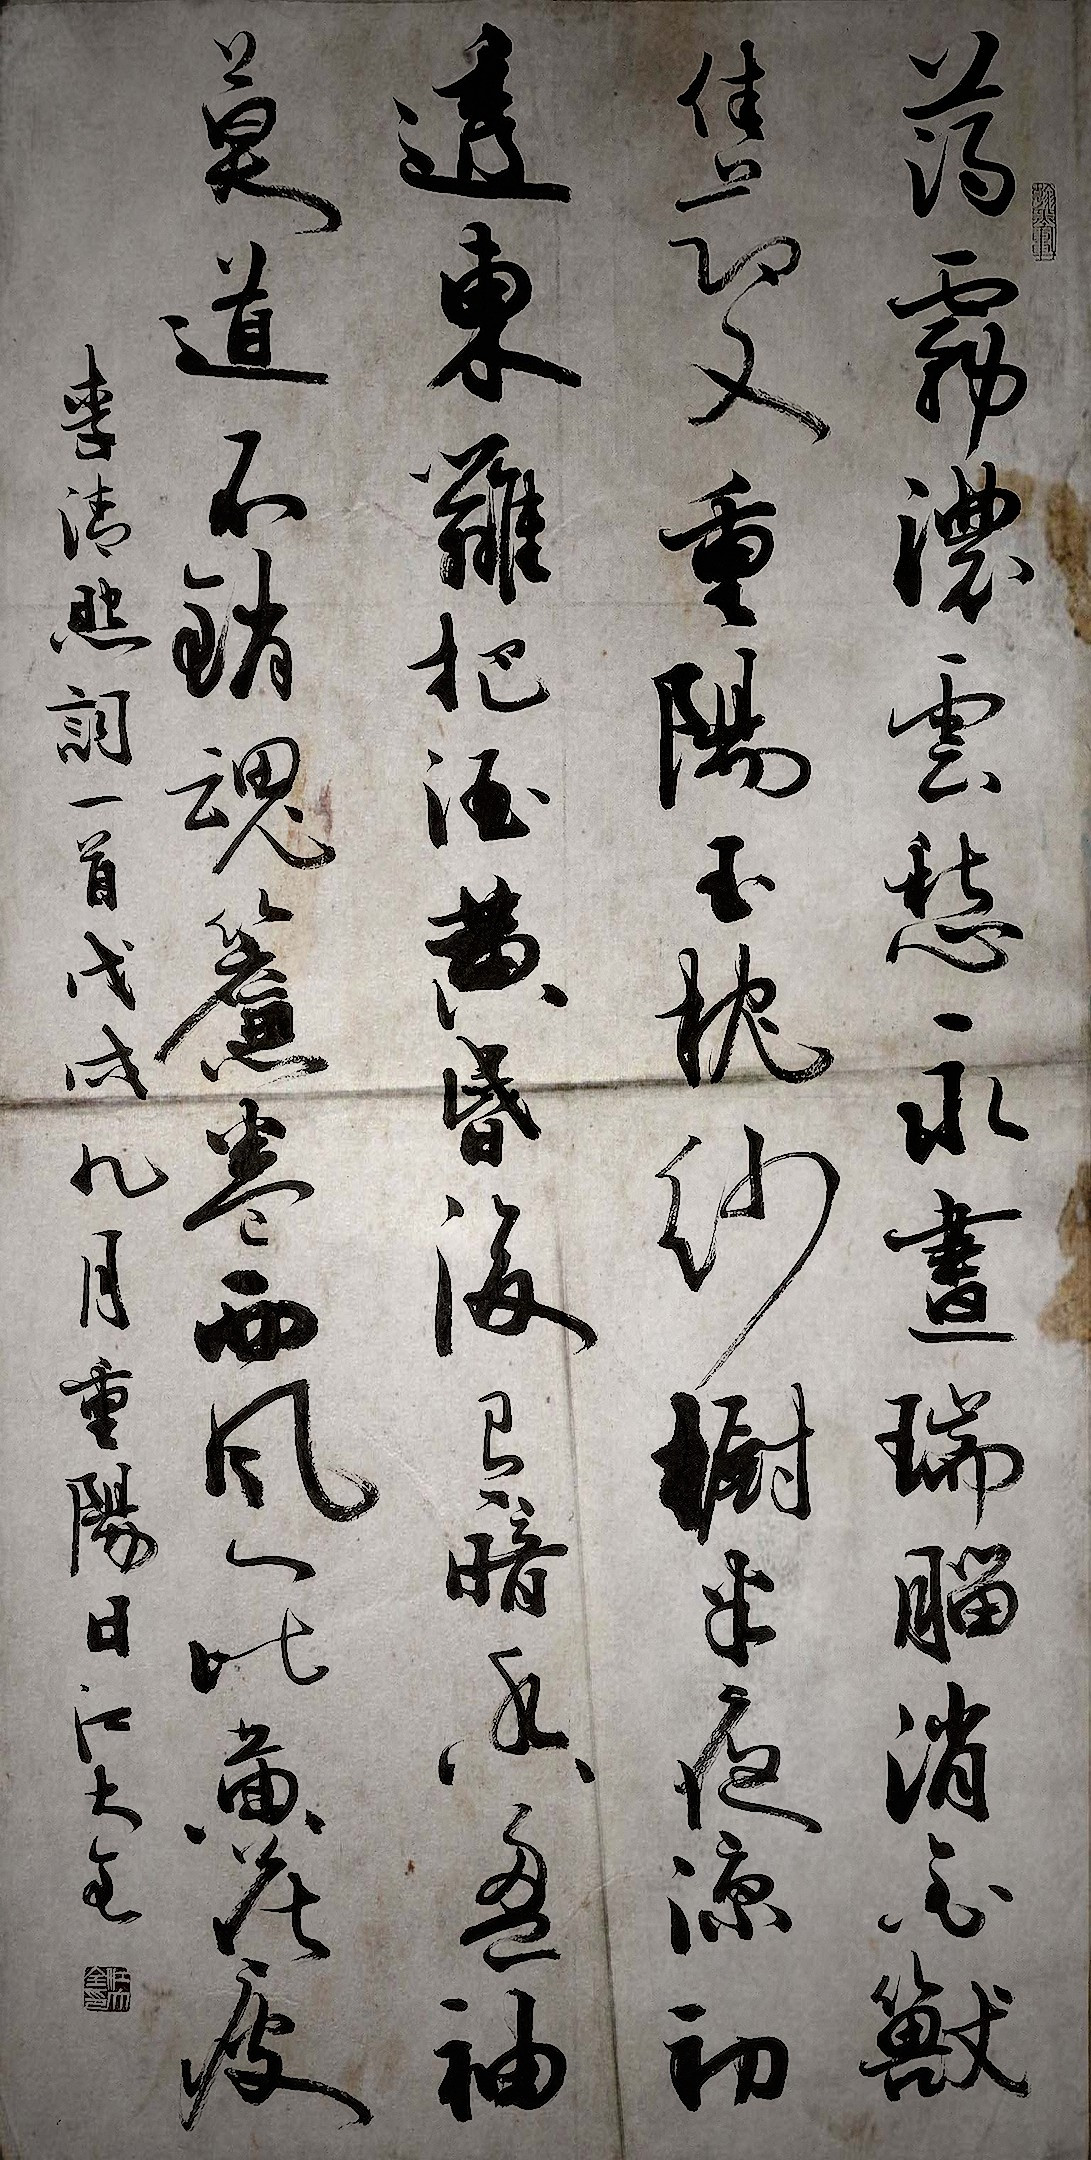 薄霧濃雲愁永晝瑞腦消金獸
佳節又重陽玉枕紗櫥半夜涼初
透東籬把酒黃昏後有暗香盈袖
莫道不銷魂簾卷西風人比黃花瘦
李清照詞一首戊戌九月重陽日江大全